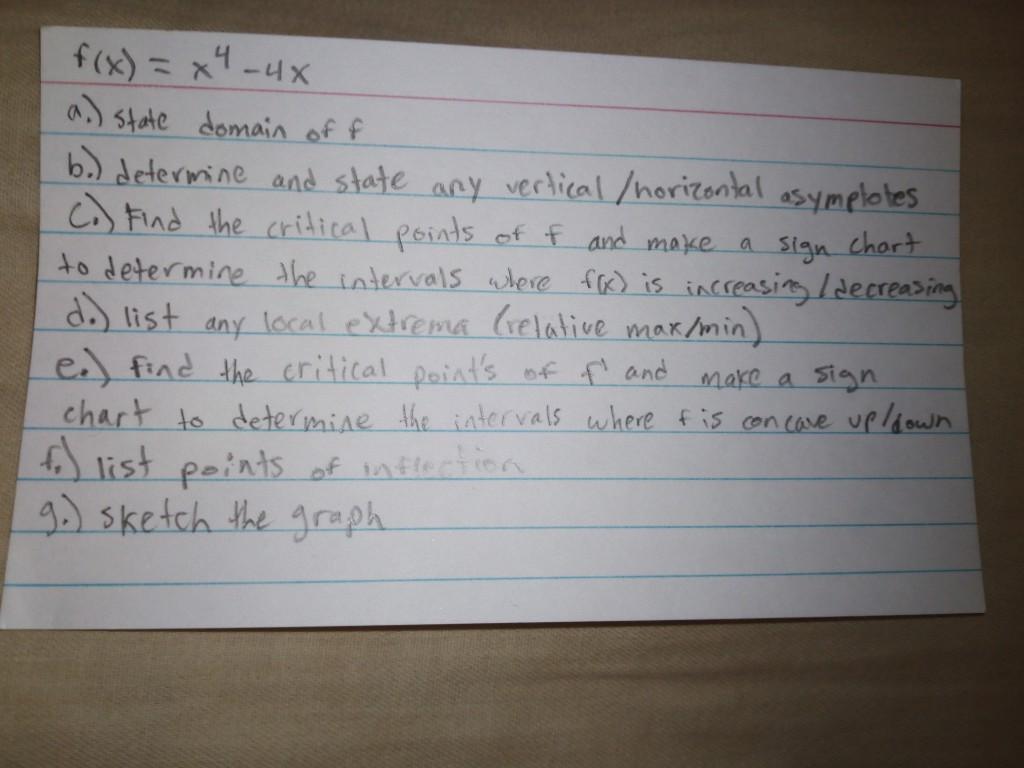 f(x) = x⁴ - 4x
a.) state domain of f
b.) determine and state any vertical/horizontal asymptotes
C.) Find the critical points of f and make a sign chart
to determine the intervals where f(x) is increasing/decreasing
d.) list any local extrema (relative max/min)
e.) find the critical point's of f' and make a sign
chart to determine the intervals where f is concave up/down
f.) list points of inflection
g.) sketch the graph